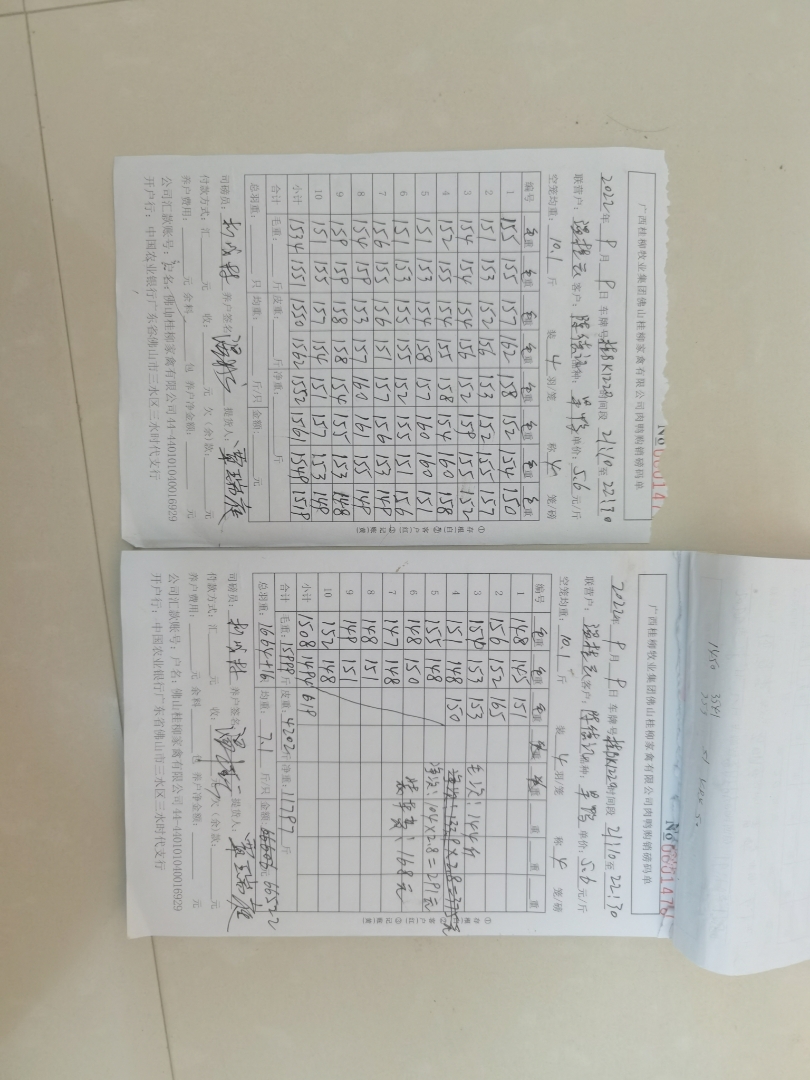 广西桂柳牧业集团佛山桂柳家禽有限公司肉鸭购销磅码单
2022年 9月 9日 车牌号 时间段 21:10至 22:30
联营户: 客户: 品种: 单价: 5.6 元/斤
空笼均重: 10.1 斤 装 4 羽/笼 称 4 笼/磅
编号 毛重 毛重 毛重 毛重 毛重 毛重 毛重 毛重
1 155 155 157 162 158 152 154 150
2 151 153 152 156 153 152 155 157
3 154 154 154 156 152 159 155 152
4 152 155 154 155 158 154 160 158
5 151 153 154 158 157 160 160 151
6 151 153 155 155 152 155 151 156
7 156 155 156 151 157 156 153 148
8 154 159 153 157 160 161 155 149
9 159 159 158 158 154 155 153 148
10 151 155 157 154 151 157 153 149
小计 1534 1551 1550 1562 1552 1561 1549 1518
合计 毛重: 斤 皮重: 斤 净重: 斤
总羽重: 只 均重: 斤/只 金额: 元
司磅员: 养户签名: 提货人:
付款方式: 汇 元 收: 元 欠(余)款: 元
养户费用: 元 余料 包 养户净金额: 元
公司汇款账号: 户名: 佛山桂柳家禽有限公司 44-440101040016929
开户行: 中国农业银行广东省佛山市三水区三水时代支行
①存根(白) ②客户(红) ③记账(黄)
广西桂柳牧业集团佛山桂柳家禽有限公司肉鸭购销磅码单
2022年 9月 9日 车牌号 时间段 21:10至 22:30
联营户: 客户: 品种: 单价: 5.6 元/斤
空笼均重: 10.1 斤 装 4 羽/笼 称 4 笼/磅
编号 毛重 毛重 毛重 毛重 毛重 重 重 重
1 148 145 151
2 156 152 165
3 154 153 153
4 151 148 150
5 155 148
6 148 150
7 147 148
8 148 151
9 149 151
10 152 148
小计 1508 1494 618
合计 毛重: 15999 斤 皮重: 4202 斤 净重: 11797 斤
总羽重: 1664+16 均重: 7.1 斤/只 金额: 66522
司磅员: 养户签名: 提货人:
付款方式: 汇 元 收: 元 欠(余)款: 元
养户费用: 元 余料 包 养户净金额: 元
公司汇款账号: 户名: 佛山桂柳家禽有限公司 44-440101040016929
开户行: 中国农业银行广东省佛山市三水区三水时代支行
①存根(白) ②客户(红) ③记账(黄)
104×2.8=291元
168元